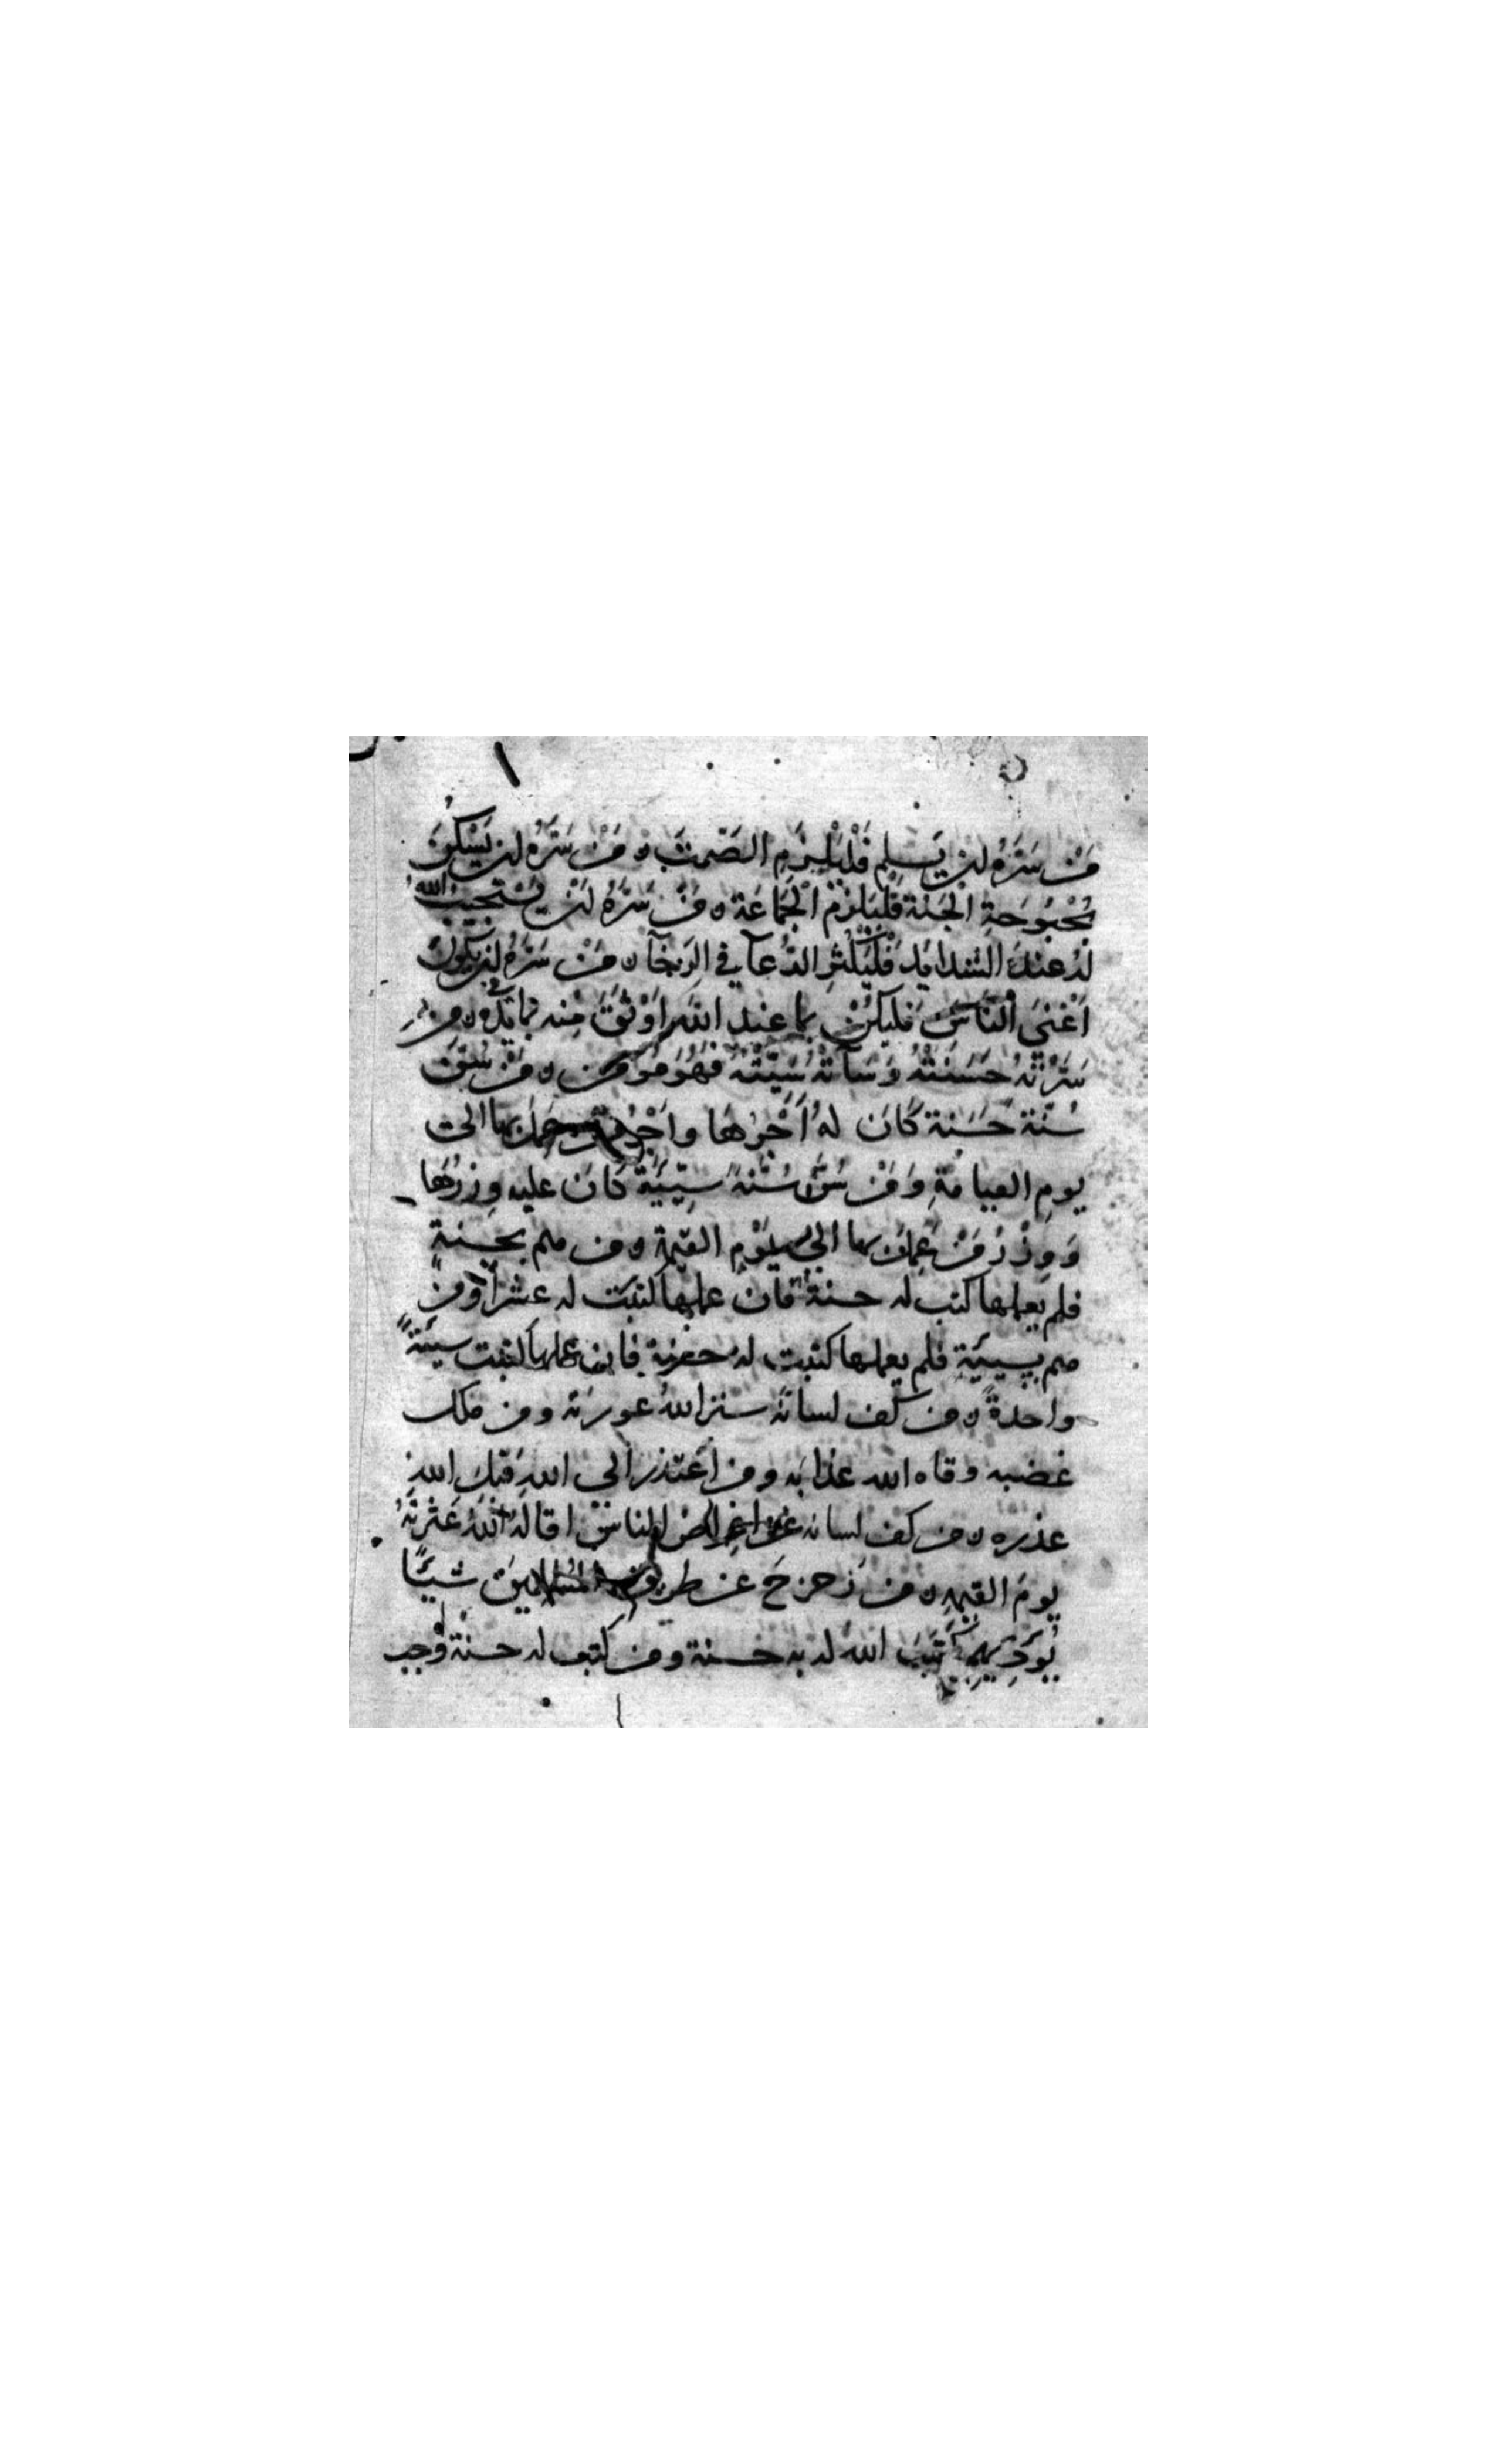 مَنْ سَرَّهُ أن يَسلِم فَلْيَلْزَمِ الصَمتَ ه مَنْ سَرَّهُ أن يَسْكُنَ
بُحْبُوحَةِ الْجَنة فَلْيَلزَمْ الْجَمَاعَة ه مَنْ سَرَّهُ أنْ يَسْتَجِيبَ اللهُ
لهُ عندَ الشدايد فَلْيُكْثِرِ الدُعآ في الرَخآ ه مَنْ سَرَّهُ أن يَكونَ
اَغْنَى النَّاسِ فَليَكُنْ بما عند اللهِ اَوْثَقَ مِنه بما يَدِهِ ه من
سَرَّتْهُ حَسَنتُهُ وَسَآتهُ سَيّئتُهُ فَهُوَ مُومن ه مَنْ سَنَّ
سُنَّة حَسَنة كَانَ لهُ اَجْرُهَا واَجْرُ من عمل بها الى
يومِ القيامَةِ وَمَنْ سَنَّ سُنَّةً سيّئةً كَانَ عليه وِزرُهَا
وَوِزْرُ مَنْ عَمِلَ بها الى يَوْمِ القيمة ه من هم بحسنةٍ
فلم يعملها كتب له حسنة فان عملها كتبت له عشراً ومن
هم بسيئةٍ فلم يعملها كتبت لهُ حسنة فان عملها كتبت سيئةً
واحدةً ه من كف لسانهُ ستر اللهُ عورتهُ ومن ملك
غضبه وقاه الله عذابَه ومن اعتذر الى اللهِ قبلَ اللهُ
عذره ه من كف لسانه عن اعراض الناسِ اقالهُ اللهُ عَثرتهُ
يومَ القيمه ه من زحزحَ عن طريق المسلمينَ شيئًا
يُوذِيهم كَتبَ اللهُ له به حسنة ومن كتب له حسنة وجب